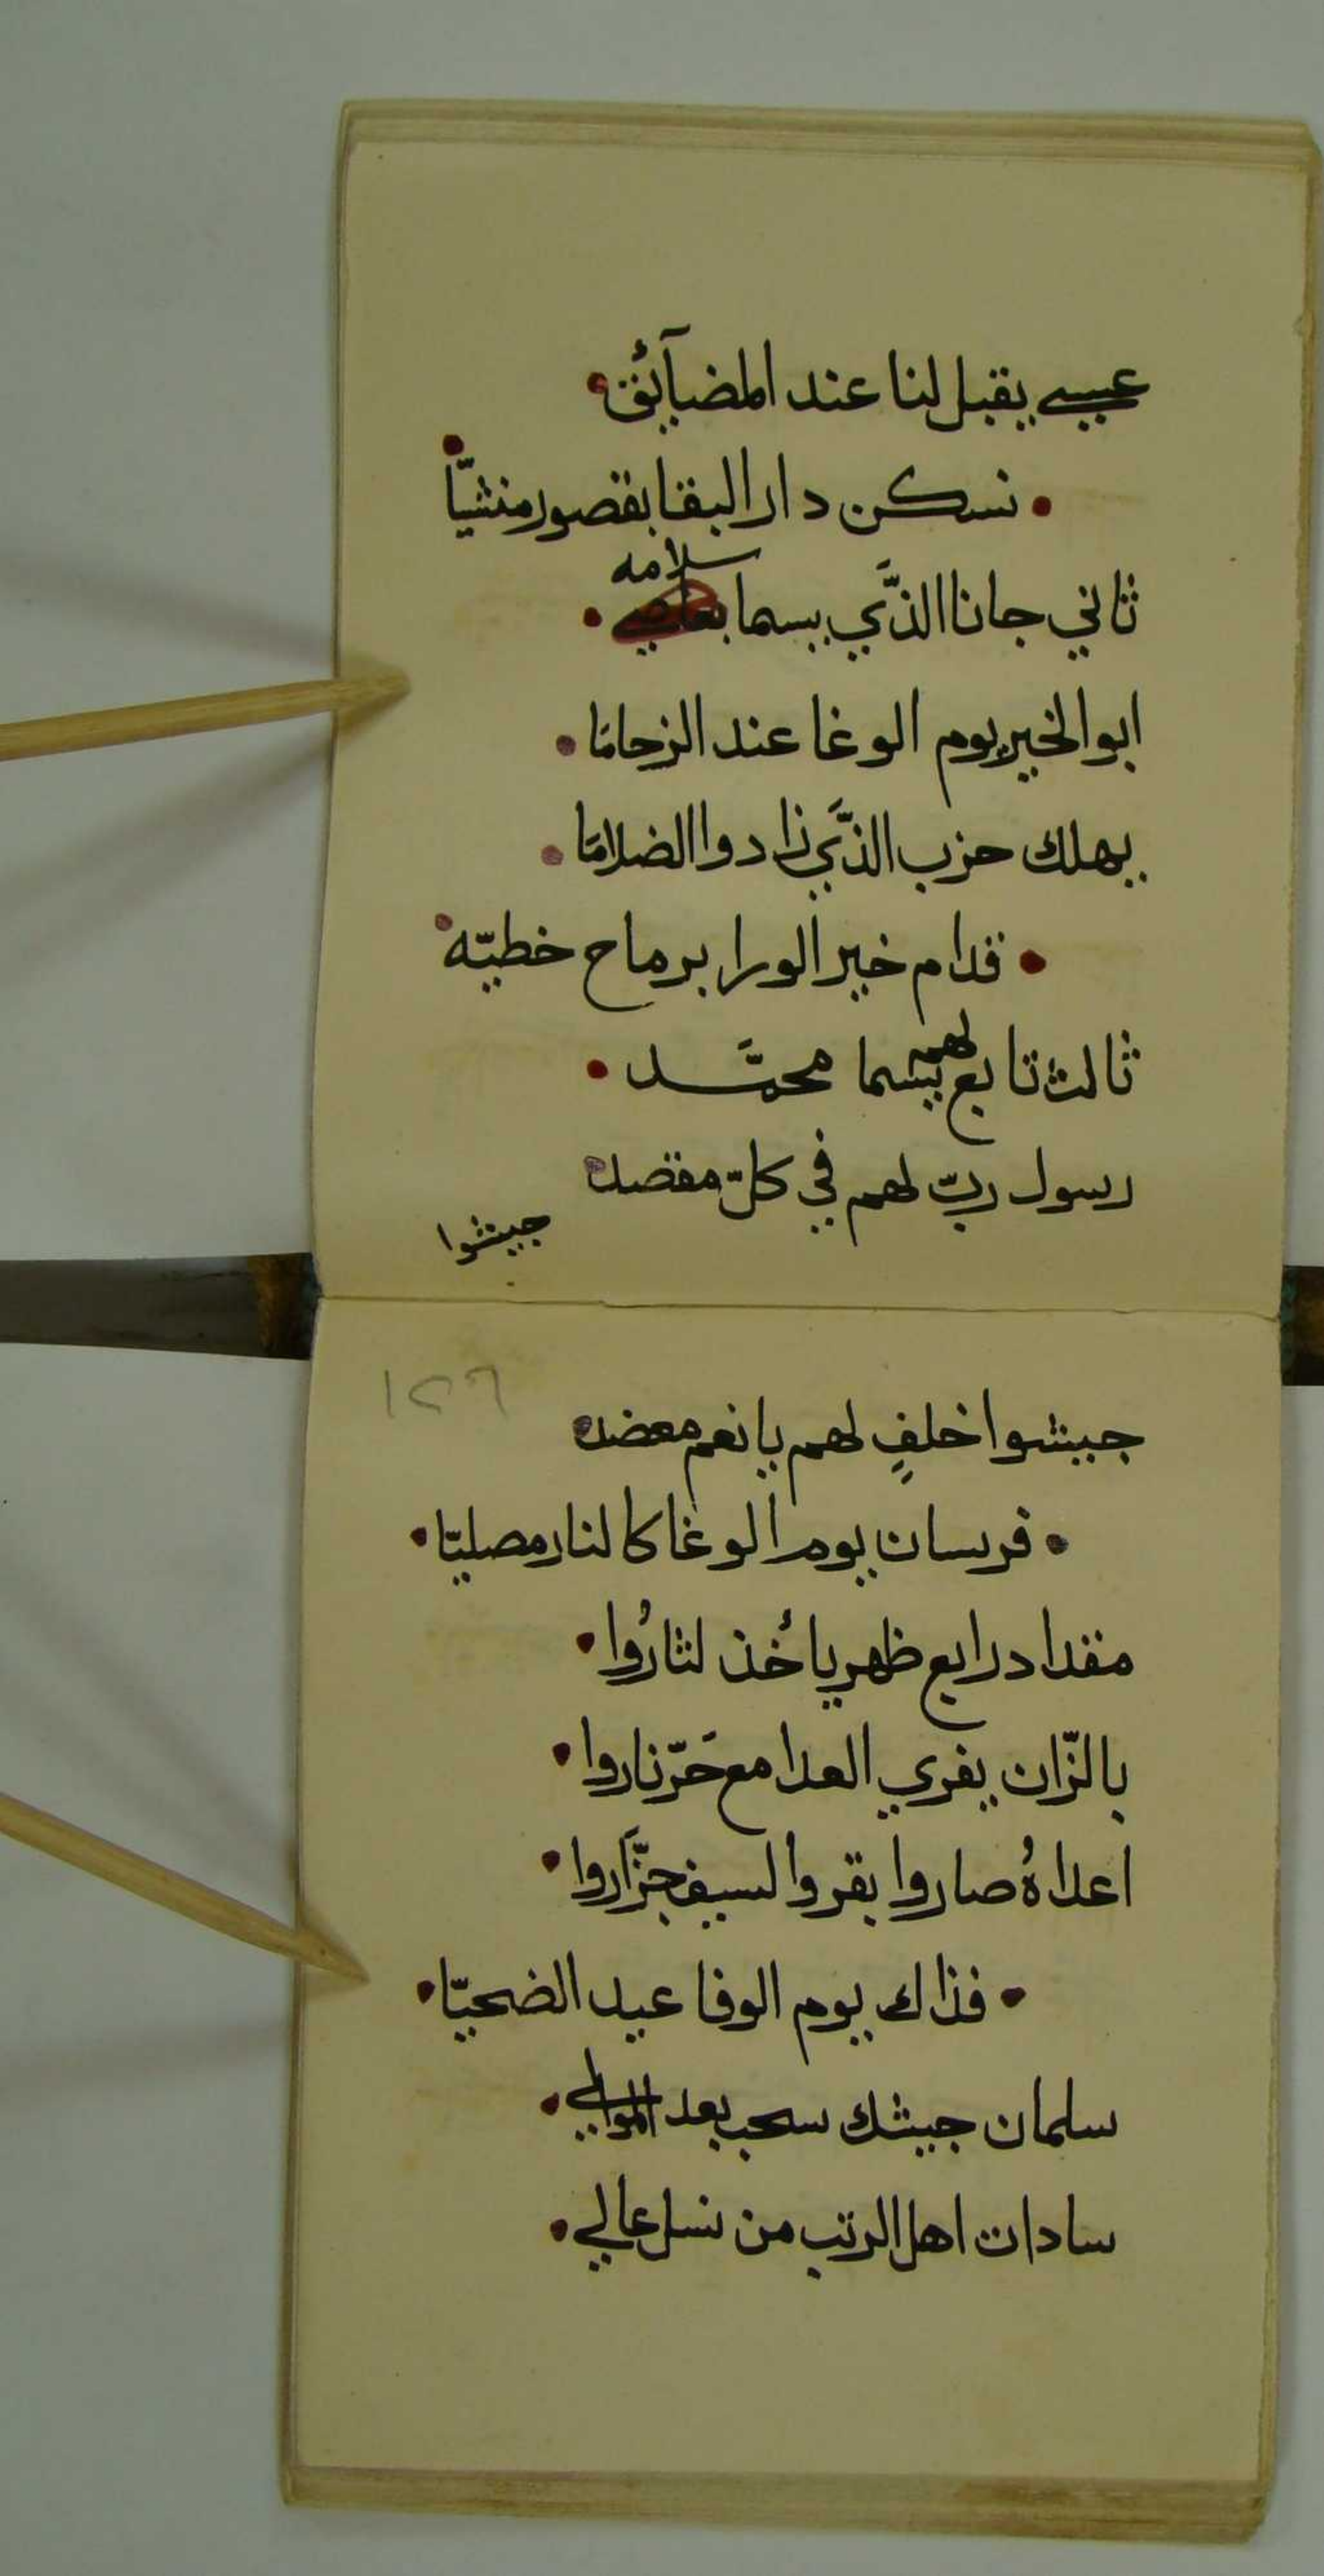 عيسي يقبل لنا عند المضآيئق
نسكن دار البقا بقصور منشيّا
سلامه
ثاني جانا الذَّي يسما
ابوا لخير يوم الوغا عند الزحامَا
يهلك حزب الذَّي زادوا الضلامَا
قدام خير الورا برماح خطيّه
ثالث تابع لهم يسما محمَّد
رسول ربّ لهم في كلّ مقصد
جيشوا
١٢٦
جيشوا خلفٍ لهم يا نعم معضد
فرسان يوم الوغا كالنار مصليّا
مقداد رابع ظهر يأخذ لثارُوا
بالزّان يفري العدا مع حَرّ ناروا
اعداهُ صاروا بقر والسيف جزَّاروا
فذاك يوم الوفا عيد الضحيّا
سلمان جيشك سحب بعد الموالي
سادات اهل الرتب من نسل عالي